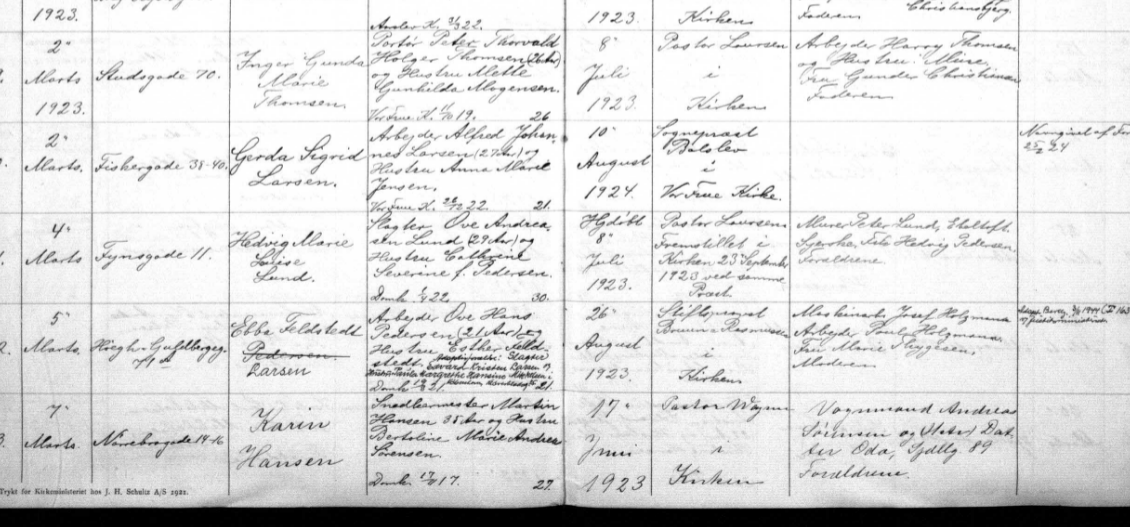 1923.
Domk. K. 3/3 22.
1923.
Kirken
Faderen
Christiansbjerg.
2"
Marts
1923.
Studsgade 70.
Inger Gunda
Marie
Thomsen.
Portør Peter Thorvald
Holger Thomsen (26 Ar)
og Hustru Mette
Gunhilda Mogensen.
Vor Frue K. 19. 26
8"
Juli
1923.
Pastor Laursen
i
Kirken
Arbejder Harry Thomsen
og Hustru
Fru Gunder Christiansen
Faderen
2"
Marts.
Fiskergade 38-40.
Gerda Sigrid
Larsen.
Arbejder Alfred Johan-
nes Larsen (27 Ar) og
Hustru Anna Marie
Jensen.
Vor Frue K. 26/12 22. 21.
10"
August
1924.
Sognepræst
Balslev
i
Vor Frue Kirke.
Navngivet af
25/2 24
4"
Marts
Fynsgade 11.
Hedvig Marie
Louise
Lund.
Slagter Ove Andrea-
sen Lund (29 Ar) og
Hustru Cathrine
Severine f. Pedersen.
Domk. 22. 30.
Hjdøbt
8"
Juli
1923.
Pastor Laursen
Fremstillet i
Kirken 23 September
1923 ved samme
Præst.
Murer Peter Lund, Ebeltoft.
Hedvig Pedersen
Forældrene
5"
Marts.
Høegh Guldbergsg.
Ebba Feldstedt
Pedersen
Larsen
Arbejder Ove Hans
Pedersen (21 Ar) og
Hustru Esther Feld-
stedt.
Domk. 21.
26"
August
1923.
Stiftsprovst
Bruun Rasmussen
i
Kirken
Maskinarb. Josef Holzmann
Arbejder Poul Holzmann
Fru Marie Thygesen,
Moderen
7"
Marts.
Nørrebrogade 14-16
Karin
Hansen
Snedkermester Martin
Hansen 35 Ar og Hustru
Bertoline Marie Andrea
Sørensen.
Domk. 17. 27.
17"
Juni
1923
Pastor Wagner
i
Kirken
Vognmand Andreas
Sørensen og Dat-
ter Oda, Sjdllg 89
Forældrene.
Trykt for Kirkeministeriet hos J. H. Schultz A/S 1921.